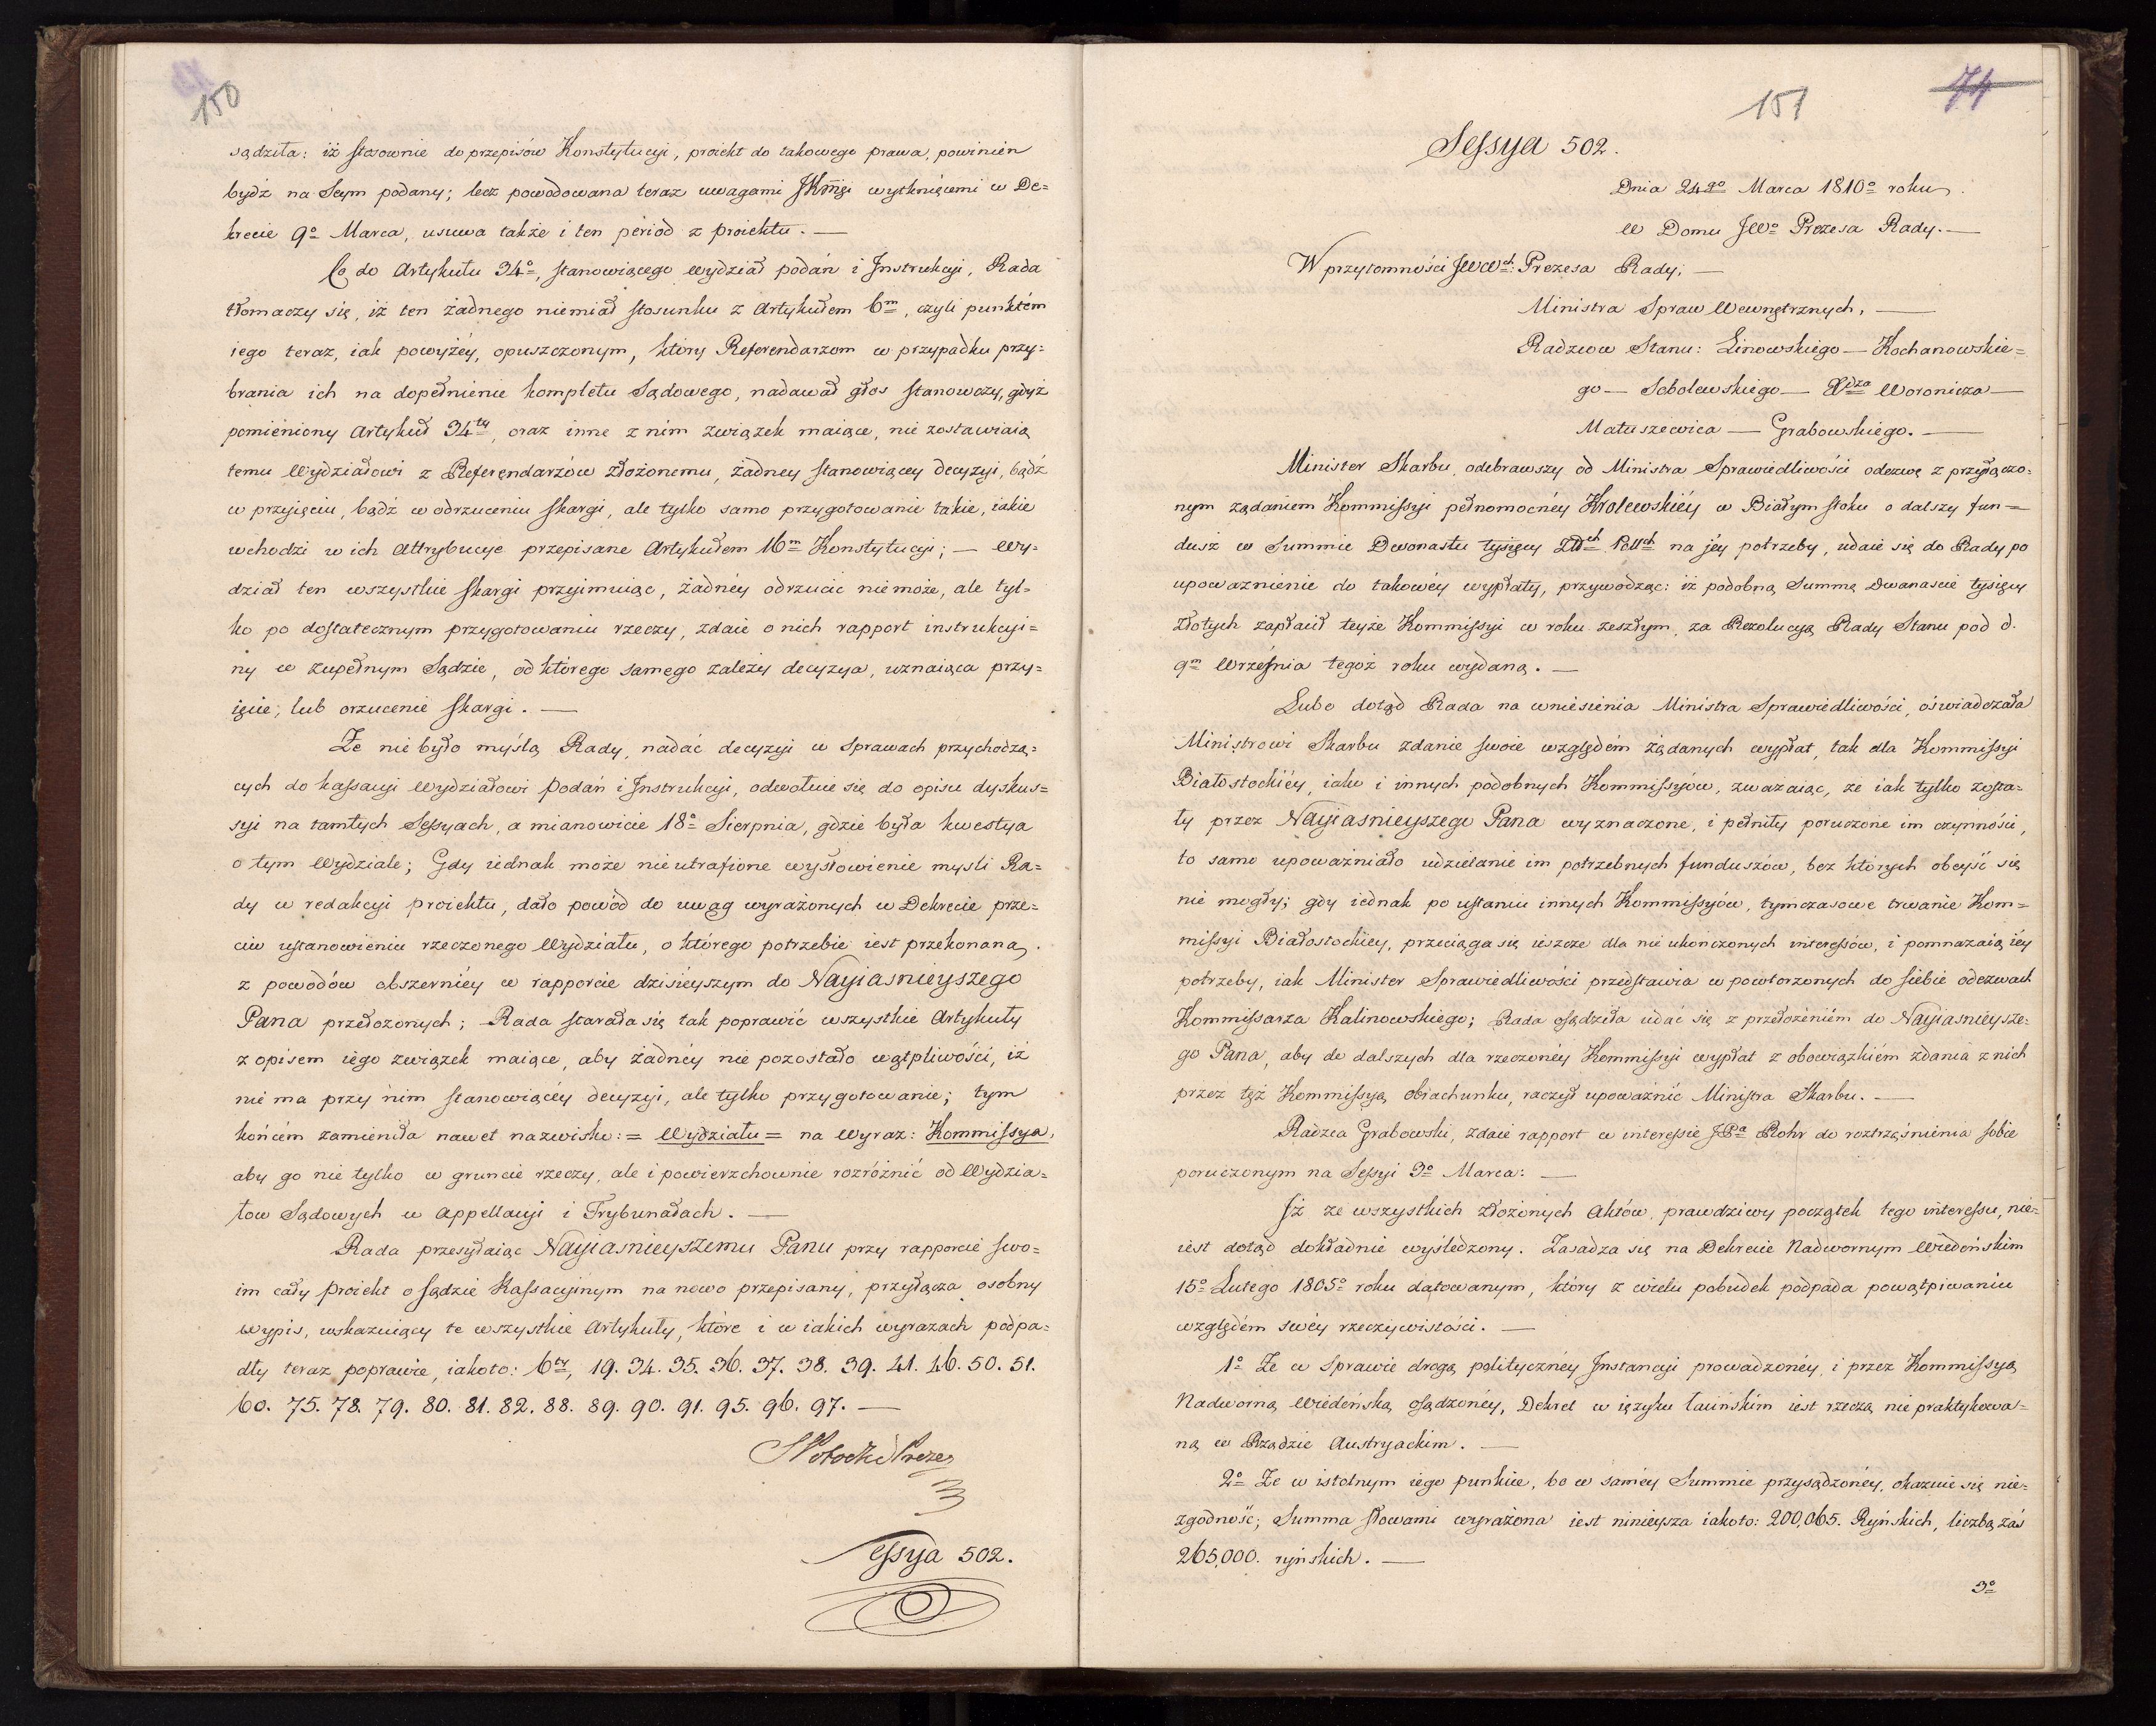 150
sądziła: iż stosownie do przepisów Konstytucyi, proiekt do takowego prawa, powinien
bydź na Seym podany; lecz powodowana teraz uwagami JKMci wytkniętemi w De=
krecie 9o Marca, usuwa także i ten period z proiektu. —
Co do Artykułu 34o, stanowiącego Wydział podań i Instrukcyi, Rada
tłomaczy się, iż ten żadnego niemiał stosunku z Artykułem 6m, czyli punktem
iego teraz, iak powyżéy, opuszczonym, który Referendarzom w przypadku przy=
brania ich na dopełnienie kompletu Sądowego, nadawał głos stanowczy, gdyż
pomieniony Artykuł 34ty, oraz inne z nim związek maiące, nie zostawiaią
temu Wydziałowi z Referendarzów złożonemu, żadney stanowiącey decyzyi, bądź
w przyięciu, bądź w odrzuceniu skargi, ale tylko samo przygotowanie takie, iakie
wchodzi w ich Attrybucye przepisane Artykułem 16m Konstytucyi; — Wy=
dział ten wszystkie skargi przyimuiąc, żadnéy odrzucic nie może, ale tyl=
ko po dostatecznym przygotowaniu rzeczy, zdaie o nich rapport instrukcyi=
ny w zupełnym Sądzie, od którego samego zależy decyzya, uznaiąca przy=
ięcie, lub orzucenie skargi. —
Że nie było myślą Rady, nadać decyzyi w Sprawach przychodzą=
cych do kassacyi Wydziałowi Podań i Instrukcyi, odwołuie się do opisu dyskus=
syi na tamtych Sessyach, a mianowicie 18o Sierpnia, gdzie była kwestya
o tym Wydziale; Gdy iednak może nie utrafione wysłowienie mysli Ra=
dy w redakcyi proiektu, dało powód do uwag wyrażonych w Dekrecie prze=
ciw ustanowieniu rzeczonego Wydziału, o którego potrzebie iest przekonana,
z powodów obszerniéy w rapporcie dzisiéyszym do Nayiasnieyszego
Pana przedłożonych; Rada starała się tak poprawić wszystkie Artykuły
z opisem iego związek maiące, aby żadnéy nie pozostało wątpliwości, iż
nie ma przy nim stanowiącéy decyzyi, ale tylko przygotowanie; tym
końcém zamieniła nawet nazwisko: = Wydziału = na Wyraz: Kommissya,
aby go nie tylko w gruncie rzeczy, ale i powierzchownie rozróżnić od Wydzia=
łow Sądowych w Appellacyi i Trybunałach. —
Rada przesyłaiąc Nayiasnieyszemu Panu przy rapporcie swo=
im cały proiekt o Sądzie Kassacyinym na nowo przepisany, przyłącza osobny
wypis, wskazuiący te wszystkie Artykuły, które i w iakich wyrazach podpa=
dły teraz poprawie, iakoto: 6ty, 19. 34. 35. 36. 37. 38. 39. 41. 46. 50. 51.
60. 75. 78. 79. 80. 81. 82. 88. 89. 90. 91. 95. 96. 97. —
Potocki Prezes
Sessya 502.
151
74
Sessya 502.
Dnia 24go Marca 1810o roku.
W Domu JWo Prezesa Rady. —
W przytomności JWWch: Prezesa Rady; —
Ministra Spraw Wewnętrznych, —
Radzców Stanu: Linowskiego — Kochanowskie=
go — Sobolewskiego — Xdza Woronicza —
Matuszewica — Grabowskiego. —
Minister Skarbu, odebrawszy od Ministra Sprawiedliwości odezwę z przyłączo=
nym żądaniem Kommissyi pełnomocnéy Krolewskiéy w Białymstoku o dalszy fun=
dusz w Summie Dwonastu tysięcy Złłch Pollch na jéy potrzeby, udaie się do Rady po
upoważnienie do takowéy wypłaty, przywodząc: iż podobną Summę Dwanascie tysięcy
Złotych zapłacił teyże Kommissyi w roku zeszłym, za Rezolucyą Rady Stanu pod d.
9m Września tegoż roku wydaną. —
Lubo dotąd Rada na wniesienia Ministra Sprawiedliwości, oświadczała
Ministrowi Skarbu zdanie swoie względém żądanych wypłat, tak dla Kommissyi
Białostockiéy, iako i innych podobnych Kommissyów, zważaiąc, że iak tylko zosta=
ły przez Nayiasnieyszego Pana wyznaczone, i pełniły poruczone im czynności,
to samo upoważniało udzielanie im potrzebnych funduszów, bez których obeyść się
nie mogły; gdy iednak po ustaniu innych Kommissyów, tymczasowe trwanie Kom=
missyi Białostockiey, przeciąga się ieszcze dla nie ukończonych interessów, i pomnażaią iéy
potrzeby, iak Minister Sprawiedliwości przedstawia w powtorzonych do siebie odezwach
Kommissarza Kalinowskiego; Rada osądziła udać się z przełożeniém do Nayiasnieysze=
go Pana, aby do dalszych dla rzeczonéy Kommissyi wypłat z obowiązkiém zdania z nich
przez tęż Kommissyą obrachunku, raczył upoważnić Ministra Skarbu. —
Radzca Grabowski, zdaie rapport w interessie JPa Rohr do roztrząśnienia sobie
poruczonym na Sessyi 3o Marca: —
Iż ze wszystkich złożonych Aktów, prawdziwy początek tego interessu, nie=
iest dotąd dokładnie wyśledzony. Zasadza się na Dekrecie Nadwornym Wiedeńskim
15o Lutego 1805o roku datowanym, który z wielu pobudek podpada powątpiwaniu
względém swéy rzeczywistości. —
1o Ze w Sprawie drogą polityczney Instancyi prowadzonéy, i przez Kommissyą
Nadworną Wiedeńską osądzonéy, Dekret w ięzyku Łacińskim iest rzeczą nie praktykowa=
ną w Rządzie Austryackim. —
2o Ze w istotnym iego punkcie, bo w saméy Summie przysądzonéy, okazuie się nie=
zgodność; Summa słowami wyrażona iest ninieysza iakoto: 200,065. Ryńskich, liczbą zaś
265,000. ryńskich. —
3o